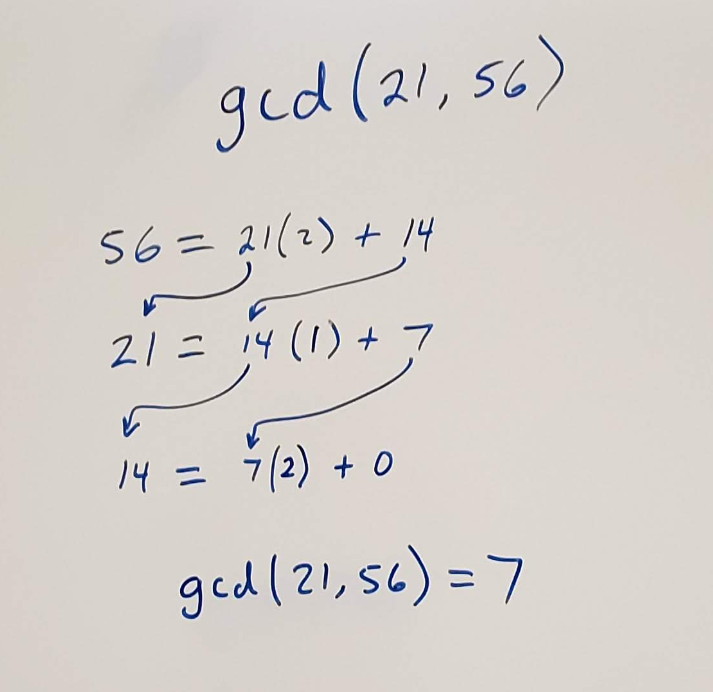 gcd(21, 56)
56 = 21(2) + 14
21 = 14(1) + 7
14 = 7(2) + 0
gcd(21, 56) = 7